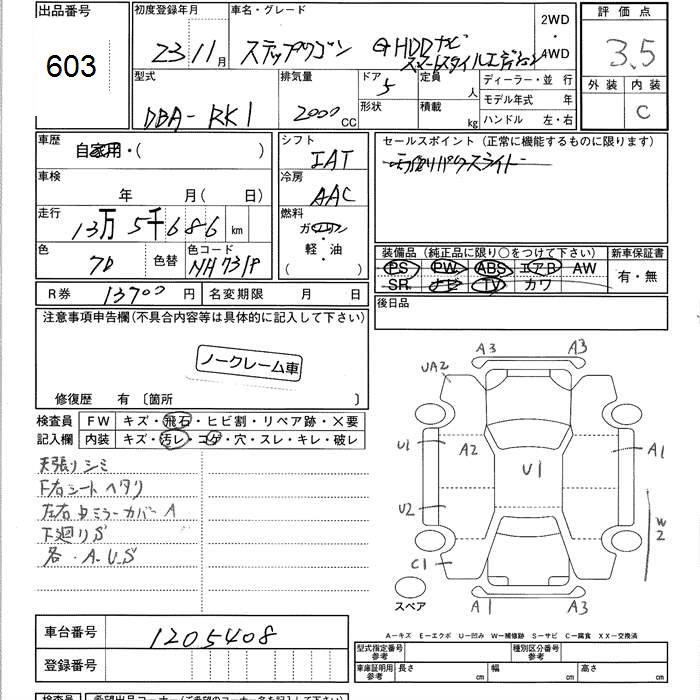 出品番号 初度登録年月 車名・グレード 2WD ・ 4WD 評価点
603 23 11月 ステップワゴン G HDDナビ スマートスタイルエディション 3.5
型式 排気量 ドア 定員 人 ディーラー・並 行 外装 内装
DBA-RK1 2000 CC 5 形状 積載 kg モデル年式 年 C
ハンドル 左・右
車歴 自家用・( ) シフト セールスポイント (正常に機能するものに限ります)
IAT
車検 年 月(日) 冷房 AAC
走行 13万5千686 km 燃料 ガソリン ・ 軽・油 ( )
色 色替 色コード NH731P
装備品 (純正品に限り○をつけて下さい) 新車保証書
PS PW ABS エアB AW 有・無
SR ナビ TV カワ
R券 13700 円 名変期限 月 日 後日品
注意事項申告欄(不具合内容等は具体的に記入して下さい)
ノークレーム車
修復歴 有 〔箇所 〕
検査員 FW キズ・飛石・ヒビ割・リペア跡・×要
記入欄 内装 キズ・汚レ・コゲ・穴・スレ・キレ・破レ
天張りシミ
F右シートヘタリ
左右ドミラーカバーA
下廻りS
各・A.U.S
A3 A3
UA2
U1 A2 U1 A1
U2 W2
C1
スペア A1 A3
A-キズ E-エクボ U-凹み W-補修跡 S-サビ C-腐食 XX-交換済
車台番号 1205408
登録番号
型式指定番号 参考 種別区分番号 参考
車庫証明用 参考 長さ cm 幅 cm 高さ cm
検査員 希望出品コーナー(ご希望のコーナー名を記入して下さい)